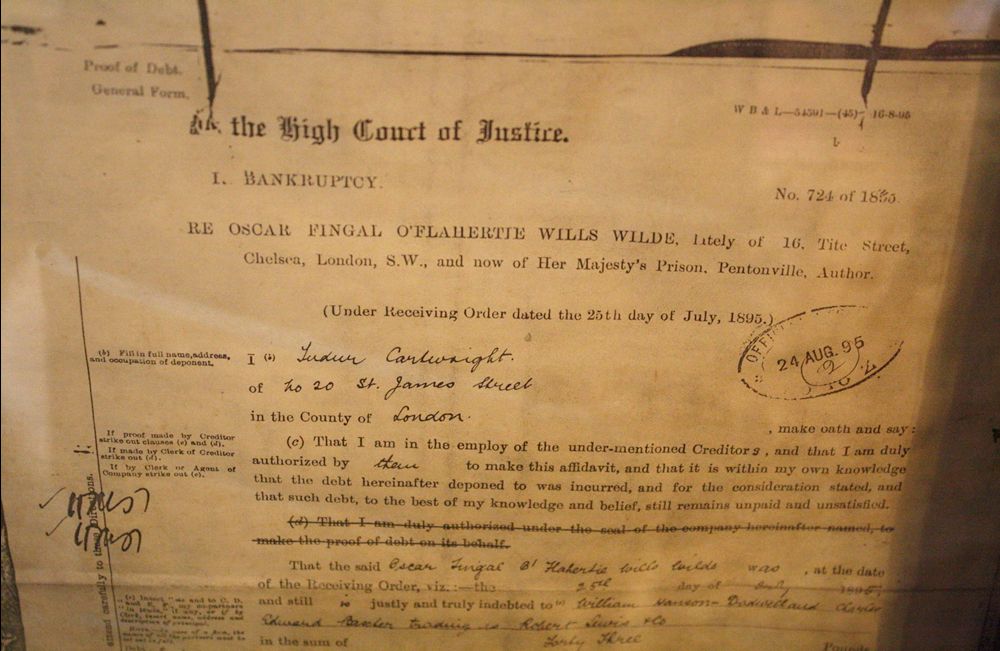 Proof of Debt.
General Form.
W B & L—54591—(45)— 16-8-95
In the High Court of Justice.
I. BANKRUPTCY.
No. 724 of 1895.
RE OSCAR FINGAL O'FLAHERTIE WILLS WILDE, lately of 16, Tite Street,
Chelsea, London, S.W., and now of Her Majesty's Prison, Pentonville, Author.
(Under Receiving Order dated the 25th day of July, 1895.)
24 AUG. 95
2
(b) Fill in full name, address,
and occupation of deponent.
I (b) Cartwright.
of No 20 St. James Street
in the County of London.
, make oath and say:
If proof made by Creditor
strike out clauses (c) and (d).
If made by Clerk of Creditor
strike out (d).
If by Clerk or Agent of
Company strike out (c).
(c) That I am in the employ of the under-mentioned Creditors, and that I am duly
authorized by them to make this affidavit, and that it is within my own knowledge
that the debt hereinafter deponed to was incurred, and for the consideration stated, and
that such debt, to the best of my knowledge and belief, still remains unpaid and unsatisfied.
(d) That I am duly authorized under the seal of the company hereinafter named, to
make the proof of debt on its behalf.
That the said Oscar Fingal O' Flahertie Wills Wilde was , at the date
of the Receiving Order, viz.:—the 25th day of July 1895,
and still is justly and truly indebted to William Hanson Dodwell and Charles
Edward Baxter trading as Robert Lewis & Co
in the sum of Forty Three Pounds